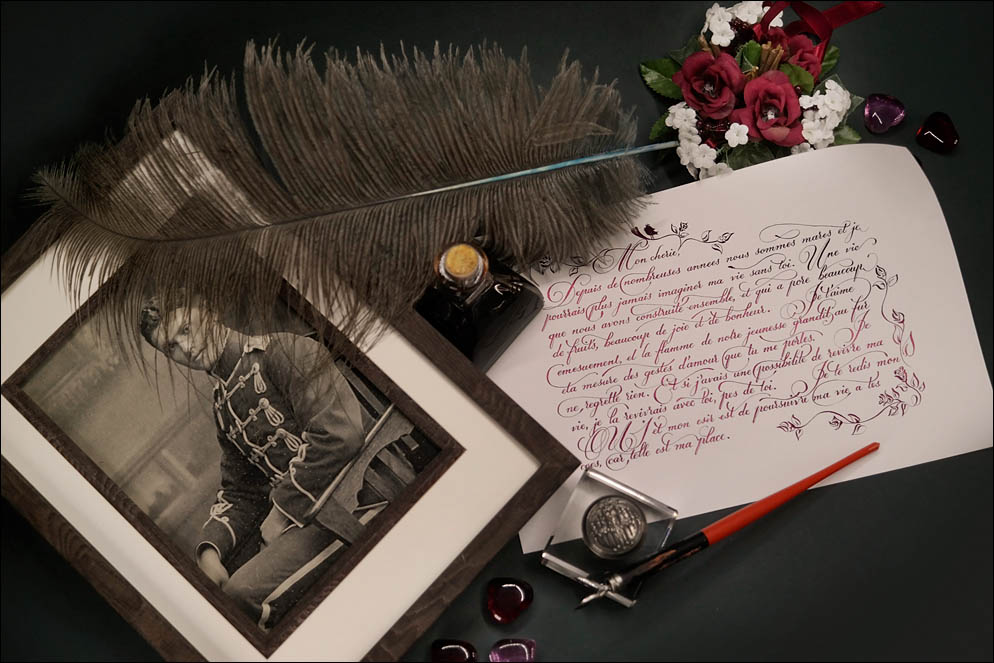 Mon cherie,
Depuis de nombreuses annees nous sommes mares et je
pourrais plus jamais imaginer ma vie sans toi. Une vie
que nous avons construite ensemble, et qui a pore beaucoup
de fruits, beaucoup de joie et de bonheur. Je t'aime
emesuement, et la flamme de notre jeunesse grandit au fur
eta mesure des gestes d'amour que tu me portes. Je
ne regrette rien. Et si j'avais une possibilite de revivre ma
vie, je la revivrais avec toi, pes de toi. Je te redis mon
OUI et mon esir est de poursuivre ma vie, a tes
car telle est ma place.